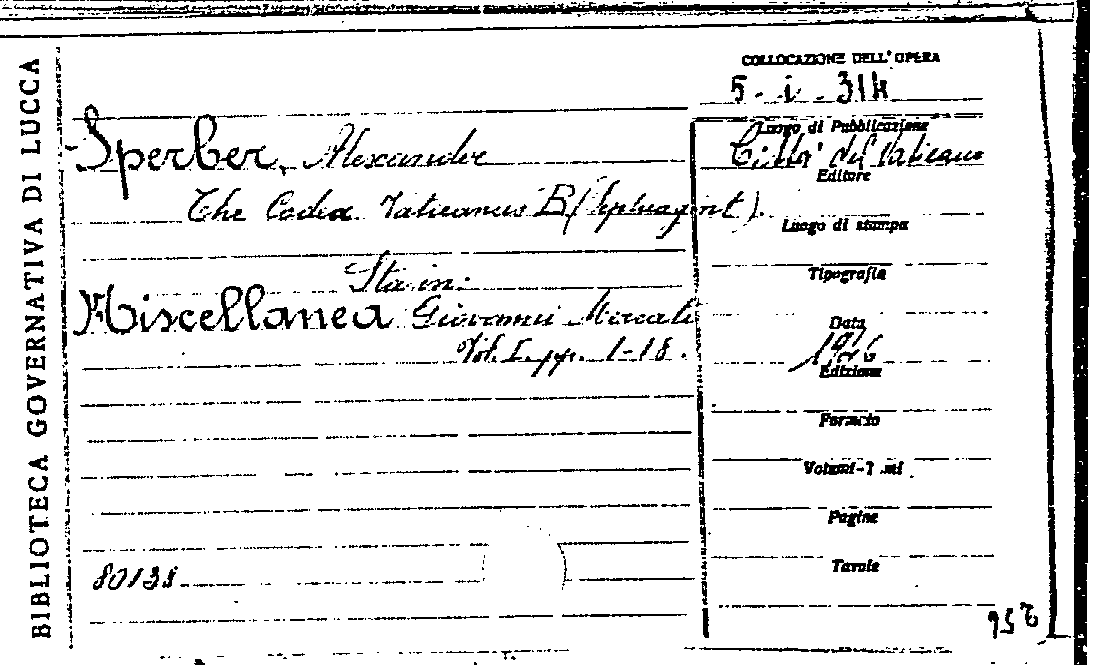 BIBLIOTECA GOVERNATIVA DI LUCCA
COLLOCAZIONE DELL'OPERA
5 - i - 314
Sperber, Alexander
The Codex Vaticanus B (Septuagint).
Sta in:
Miscellanea Giovanni Mercati
Vol. I. pp. 1-18.
80138
Luogo di Pubblicazione
Città del Vaticano
Editore
Luogo di stampa
Tipografia
Data
1946
Edizione
Formato
Volumi-T mi
Pagine
Tavole